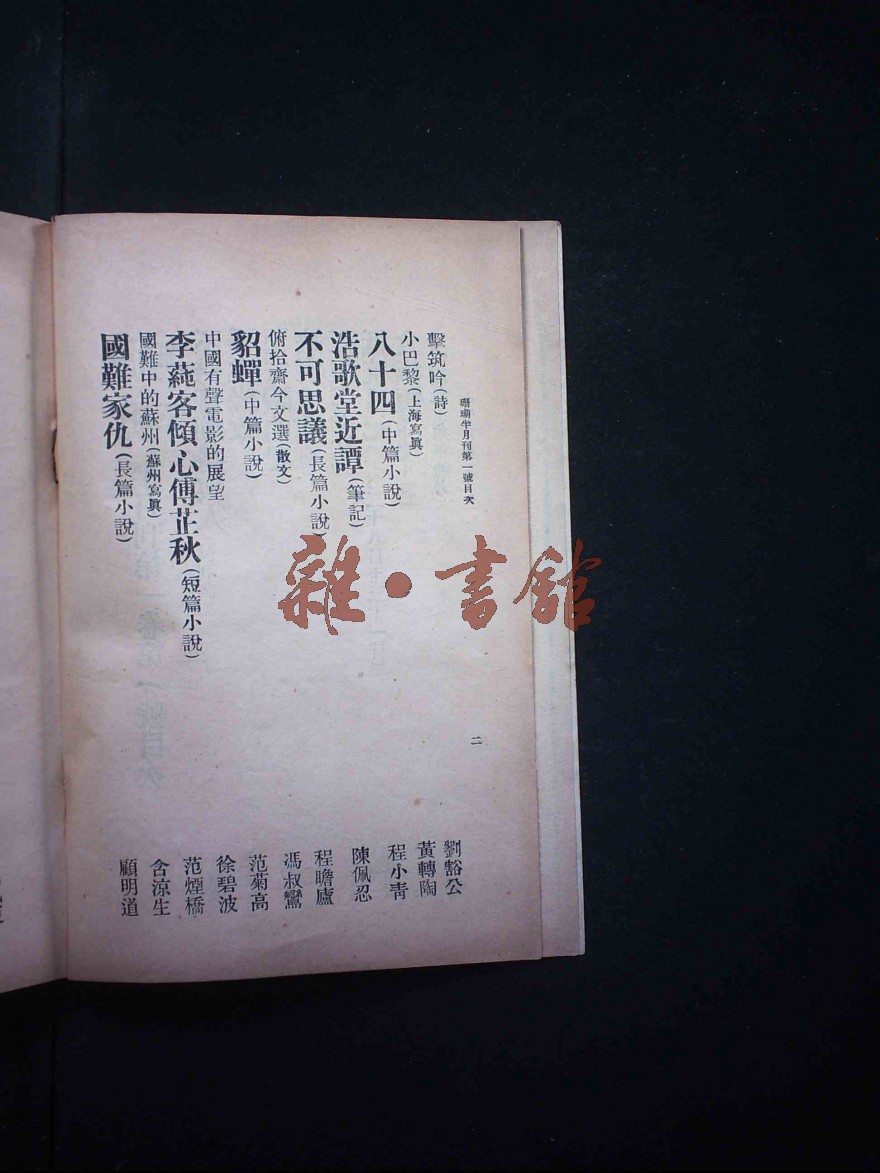 珊瑚半月刊第一號目次 二
擊筑吟(詩) 劉豁公
小巴黎(上海寫眞) 黃轉陶
八十四(中篇小說) 程小青
浩歌堂近譚(筆記) 陳佩忍
不可思議(長篇小說) 程瞻廬
俯拾齋今文選(散文) 馮叔鸞
貂蟬(中篇小說) 范菊高
中國有聲電影的展望 徐碧波
李蒓客傾心傅芷秋(短篇小說) 范煙橋
國難中的蘇州(蘇州寫眞) 含涼生
國難家仇(長篇小說) 顧明道
雜·書館